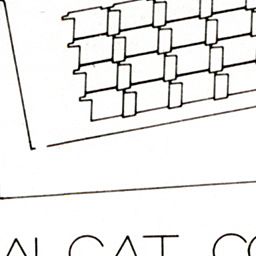 ALCAT CO